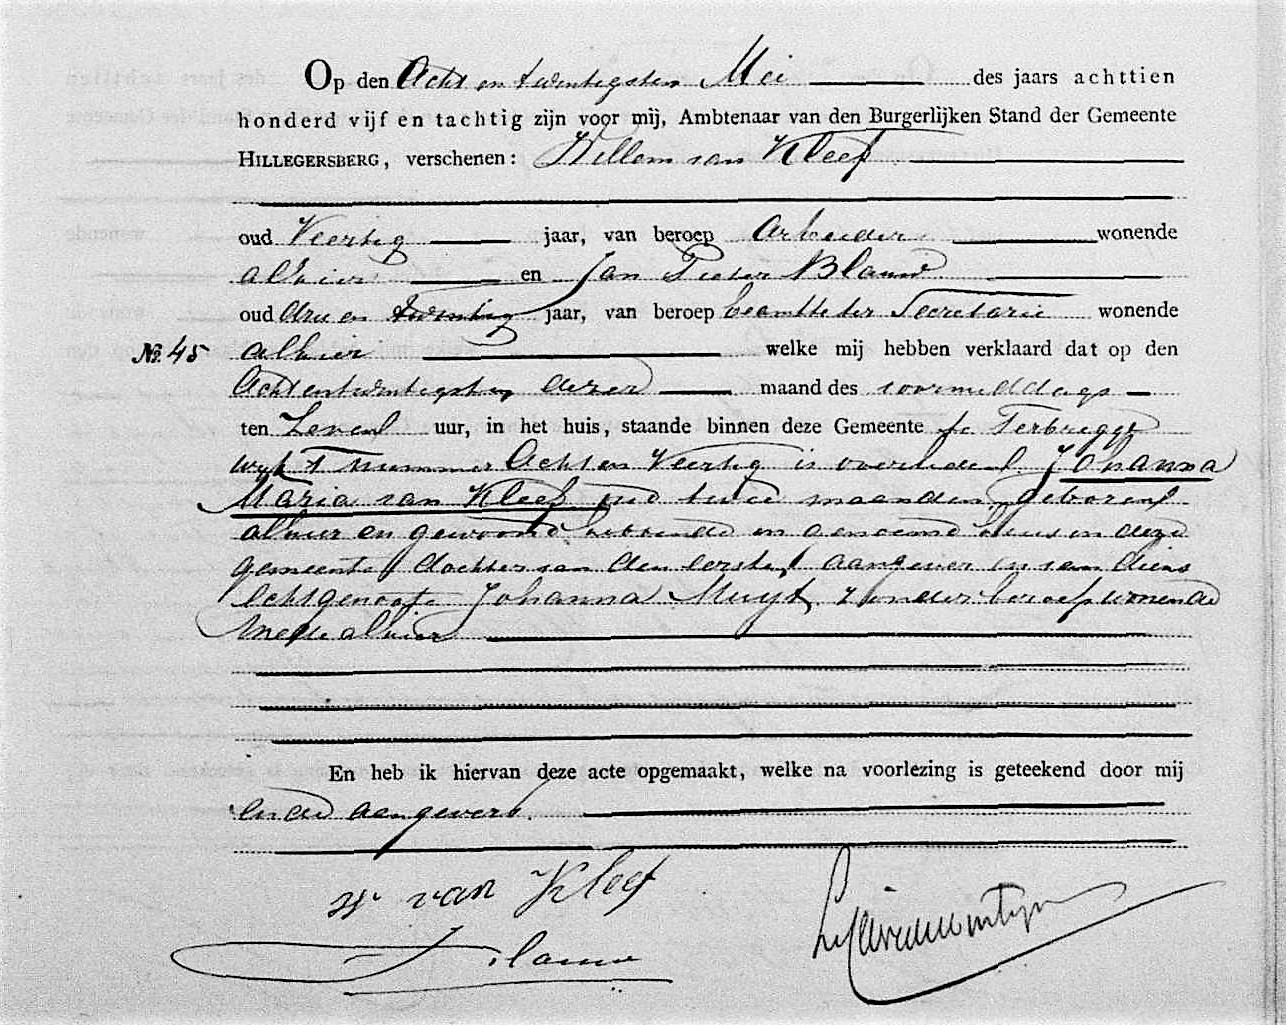 Op den Acht en twintigsten Mei des jaars achttien
honderd vijf en tachtig zijn voor mij, Ambtenaar van den Burgerlijken Stand der Gemeente
HILLEGERSBERG, verschenen: Willem van Kleef
oud Veertig jaar, van beroep Arbeider wonende
alhier en Jan Pieter Blauw
oud drie en twintig jaar, van beroep beambte ter Secretarie wonende
No. 45 alhier welke mij hebben verklaard dat op den
Achtentwintigsten dezer maand des voormiddags
ten Zeven uur, in het huis, staande binnen deze Gemeente te Terbregge
wijk nummer Acht en Veertig is overleden Johanna
Maria van Kleef oud twee maanden, geboren
alhier en gewoond hebbende in genoemd huis in deze
gemeente, dochter van den eersten aangever en van diens
Echtgenoote Johanna Muyt, zonder beroep wonende
mede alhier
En heb ik hiervan deze acte opgemaakt, welke na voorlezing is geteekend door mij
en de aangevers.
W van Kleef
Blauw